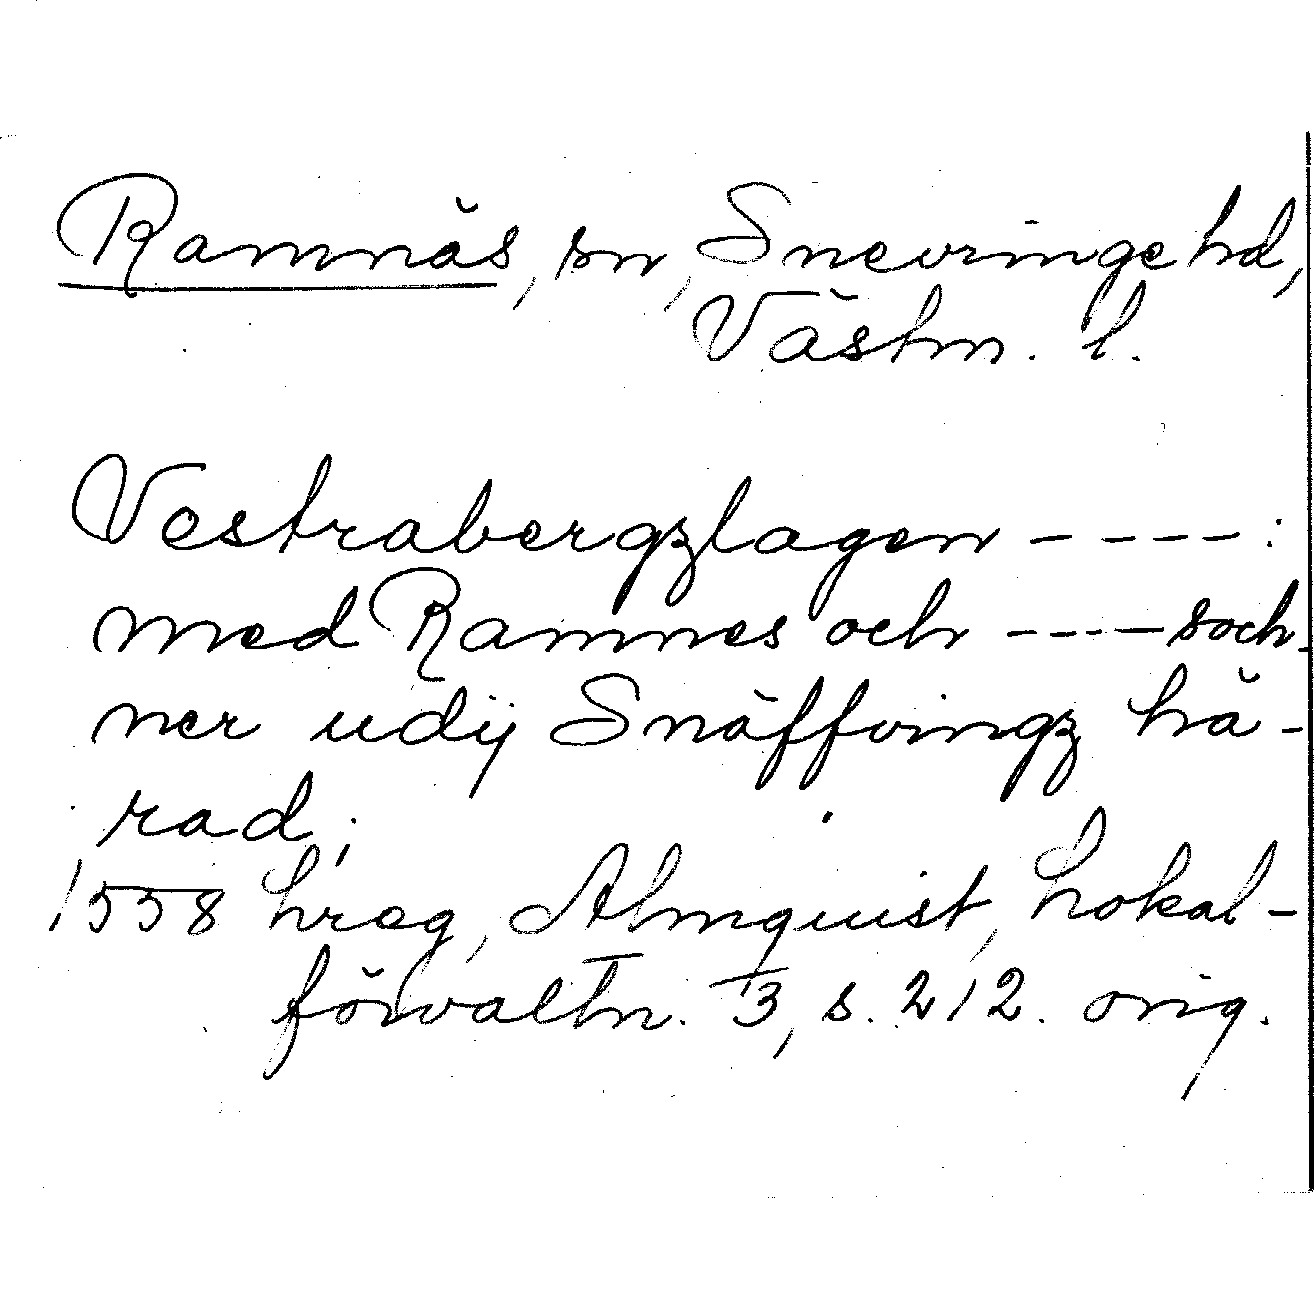 Ramnäs, sn, Snevringe hd,
Västm. l.
Vestrabergzlagen ----:
med Ramnes och ---- soch-
ner udij Snäffvingz hä-
rad;
1558 hreg, Almquist, Lokal-
förvaltn. 3, s. 212. orig.